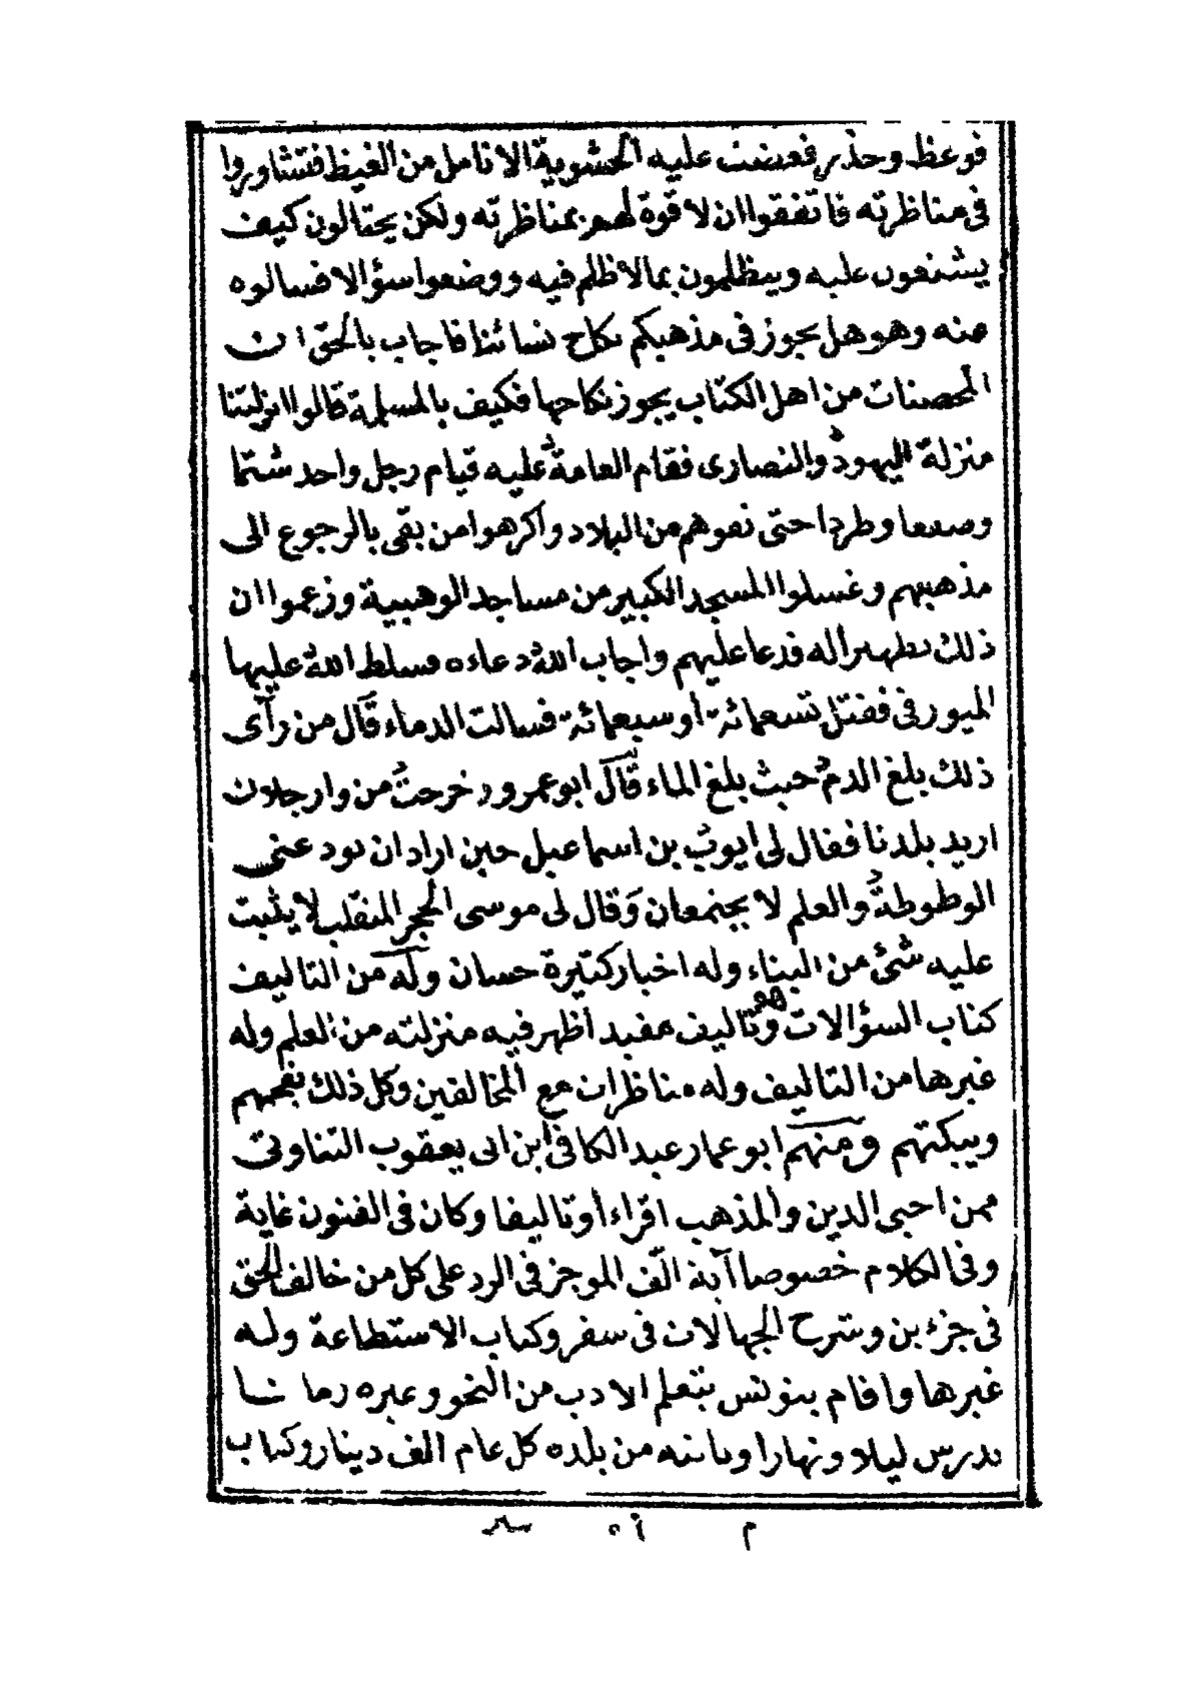 فوعظ وحذر فعضت عليه الحشوية الانامل من الغيظ فتشاوروا
فى مناظرته فاتفقوا ان لا قوة لهم بمناظرته ولكن يحتالون كيف
يشنعون عليه ويظلمون بما لا ظلم فيه ووضعوا سؤالا فسالوه
عنه وهو هل يجوز فى مذهبكم نكاح نسائنا فاجاب بالحق ان
المحصنات من اهل الكتاب يجوز نكاحها فكيف بالمسلمة قالوا انزلتنا
منزلة اليهود والنصارى فقام العامة عليه قيام رجل واحد شتما
وصفعا وطردا حتى نفوهم من البلاد واكرهوا من بقى بالرجوع الى
مذهبهم وغسلوا المسجد الكبير من مساجد الوهبية وزعموا ان
ذلك تطهيرا له فدعا عليهم واجاب الله دعاءه فسلط الله عليها
الميورفى فقتل تسعمائة او سبعمائة فسالت الدماء قال من رأى
ذلك بلغ الدم حيث بلغ الماء قال ابو عمرو خرجت من وارجلان
اريد بلدنا فقال لى ايوب بن اسماعيل حين اراد ان يودعنى
الوطوطة والعلم لا يجتمعان وقال لى موسى الحجر المنقلب لا يثبت
عليه شئ من البناء وله اخبار كثيرة حسان وله من التاليف
كتاب السؤالات وهو تاليف مفيد اظهر فيه منزلته من العلم وله
غيرها من التاليف وله مناظرات مع المخالفين وكل ذلك يفحمهم
ويبكتهم ومنهم ابو عمار عبد الكافى ابن ابى يعقوب التناوتى
ممن احيى الدين والمذهب اقراء وتاليفا وكان فى الفنون غاية
وفى الكلام خصوصا آية الف الموجز فى الرد على كل من خالف الحق
فى جزئين وشرح الجهالات فى سفر وكتاب الاستطاعة وله
غيرها واقام بتونس بتعلم الادب من النحو وغيره زمانا
يدرس ليلا ونهارا وياتيه من بلده كل عام الف دينار وكتاب
م ٥١